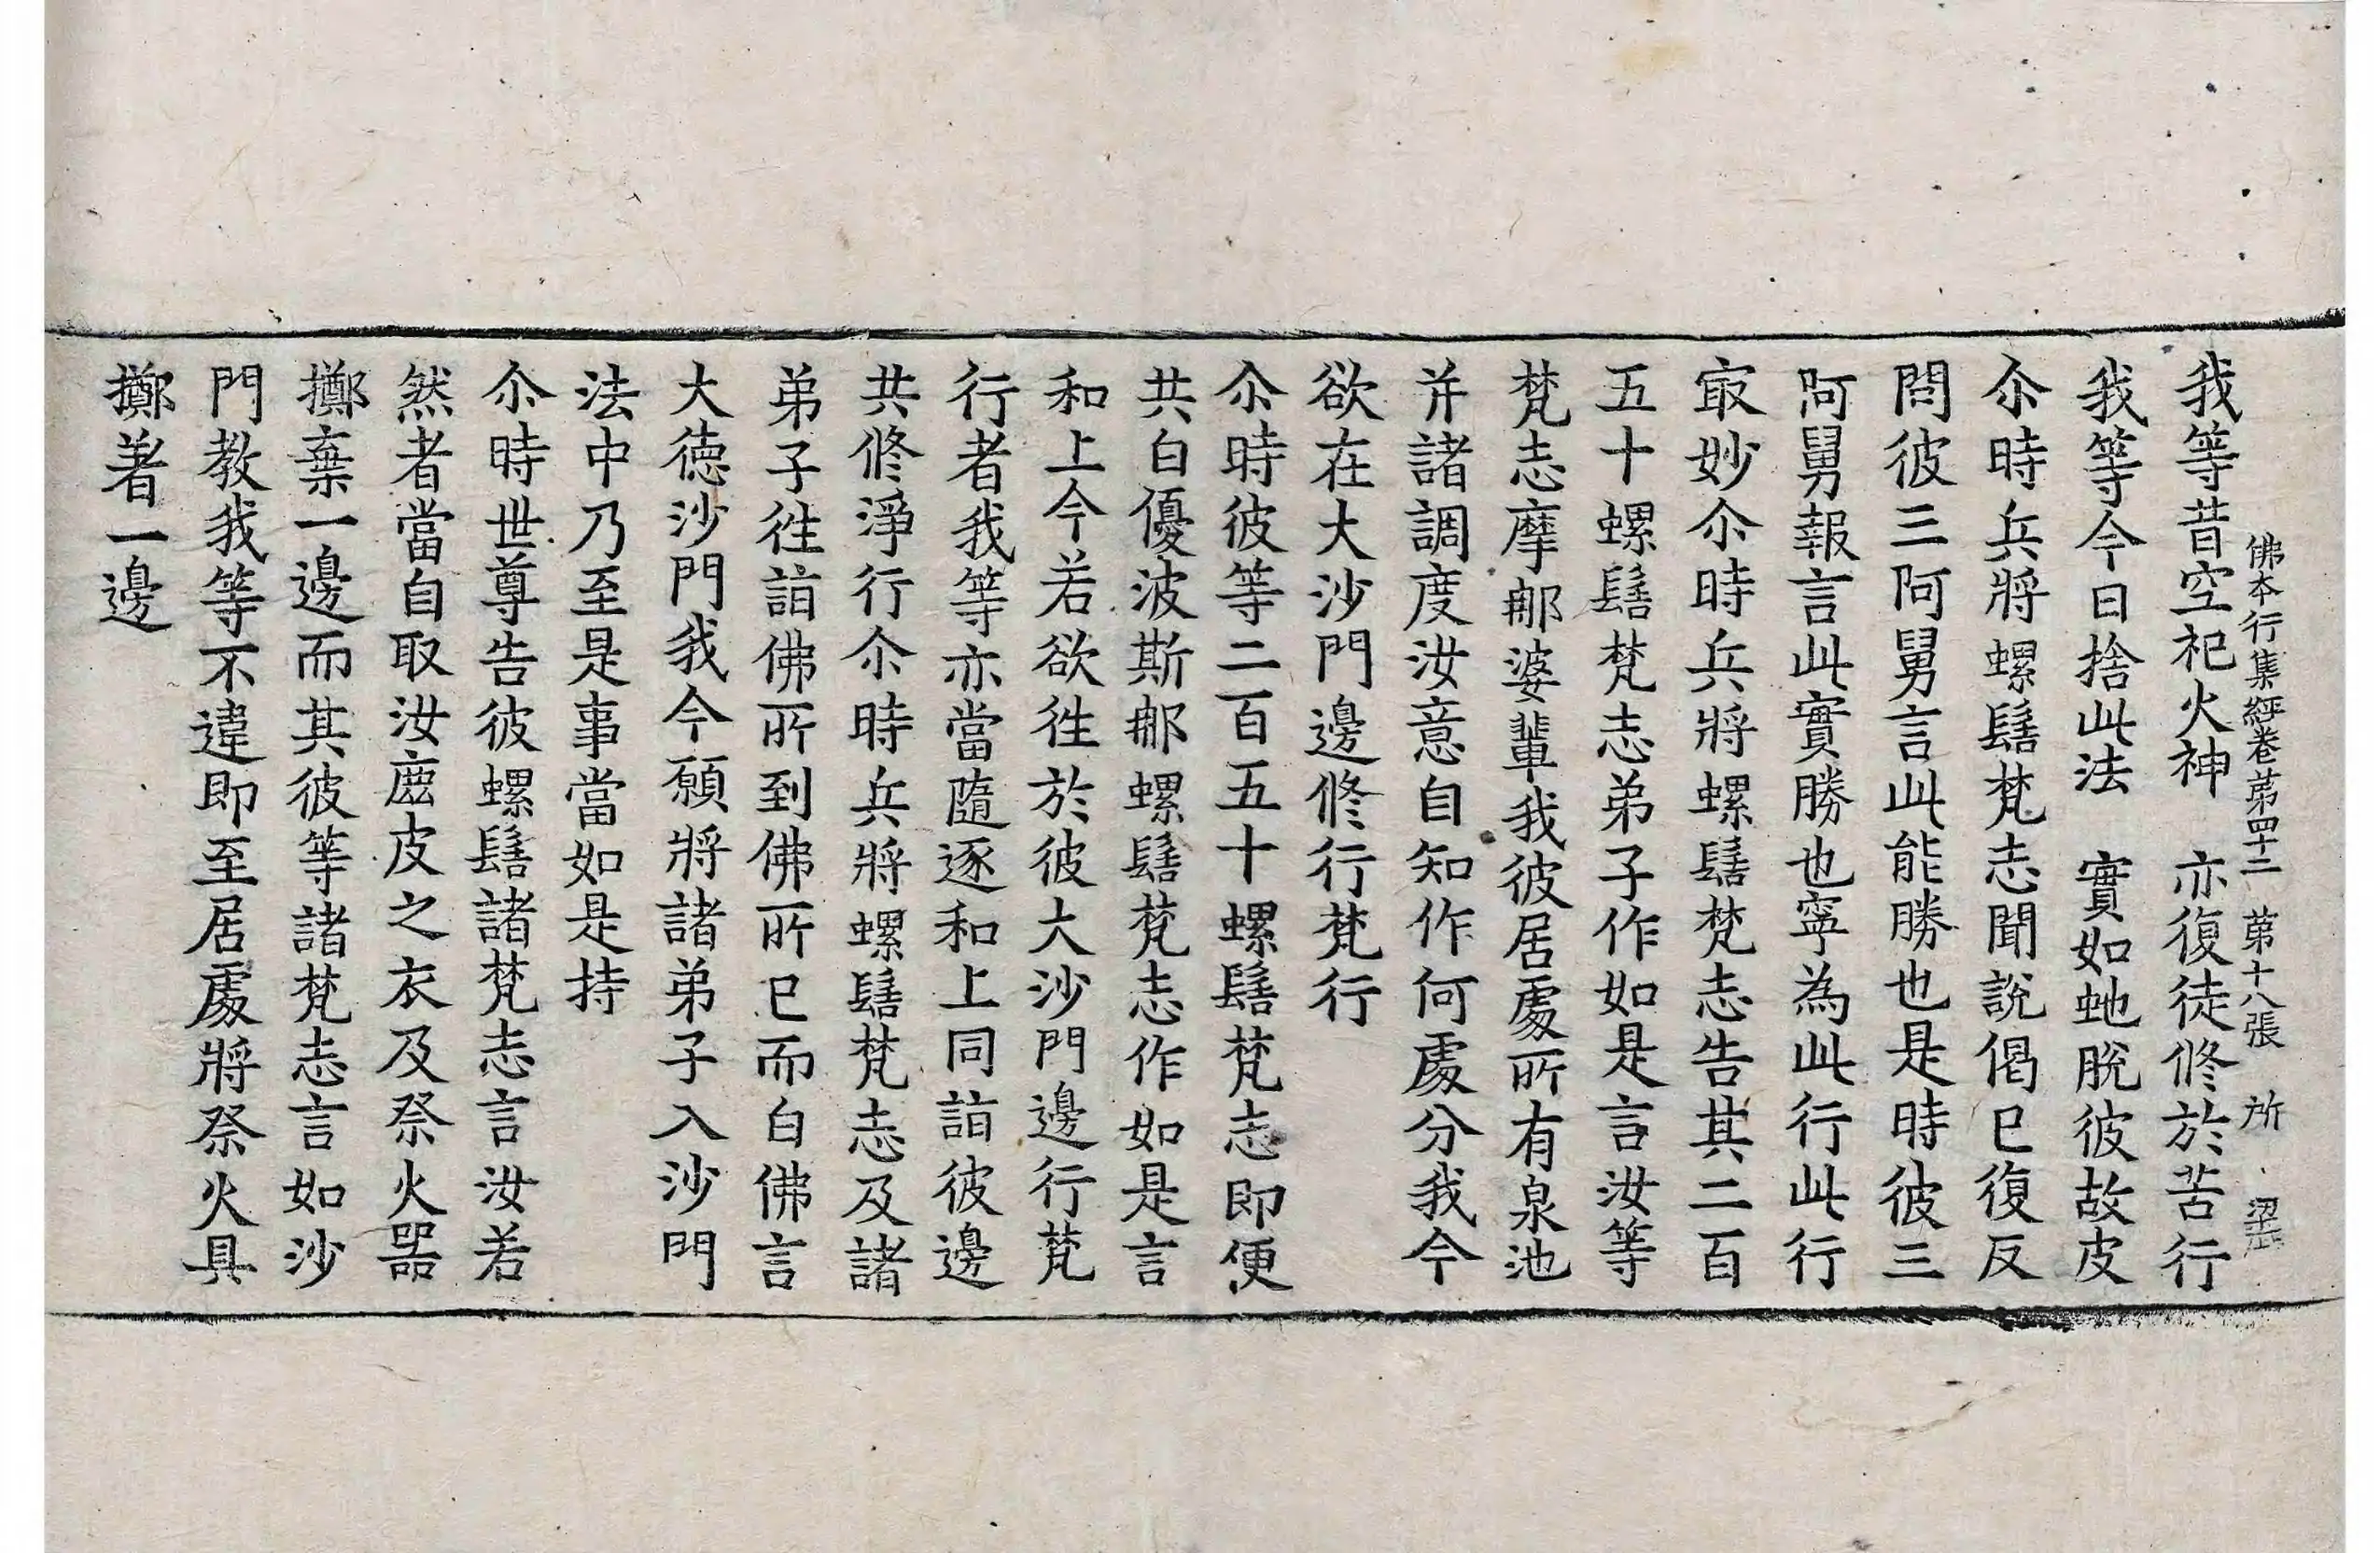 佛本行集經卷第四十二 第十八張 所
我等昔空祀火神 亦復徒修於苦行
我等今日捨此法 實如虵脫彼故皮
尒時兵將螺髻梵志聞說偈已復反
問彼三阿舅言此能勝也是時彼三
阿舅報言此實勝也寧為此行此行
㝡妙尒時兵將螺髻梵志告其二百
五十螺髻梵志弟子作如是言汝等
梵志摩那婆輩我彼居處所有泉池
并諸調度汝意自知作何處分我今
欲在大沙門邊修行梵行
尒時彼等二百五十螺髻梵志即便
共白優波斯那螺髻梵志作如是言
和上今若欲徃於彼大沙門邊行梵
行者我等亦當隨逐和上同詣彼邊
共修淨行尒時兵將螺髻梵志及諸
弟子徃詣佛所到佛所已而白佛言
大德沙門我今願將諸弟子入沙門
法中乃至是事當如是持
尒時世尊告彼螺髻諸梵志言汝若
然者當自取汝鹿皮之衣及祭火器
擲棄一邊而其彼等諸梵志言如沙
門教我等不違即至居處將祭火具
擲著一邊